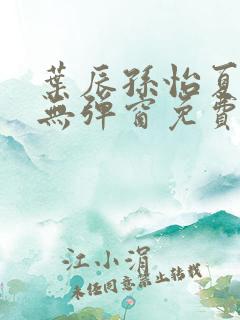 葉辰孫怡夏
無彈窗免費
江小涓
未任同意禁止轉載